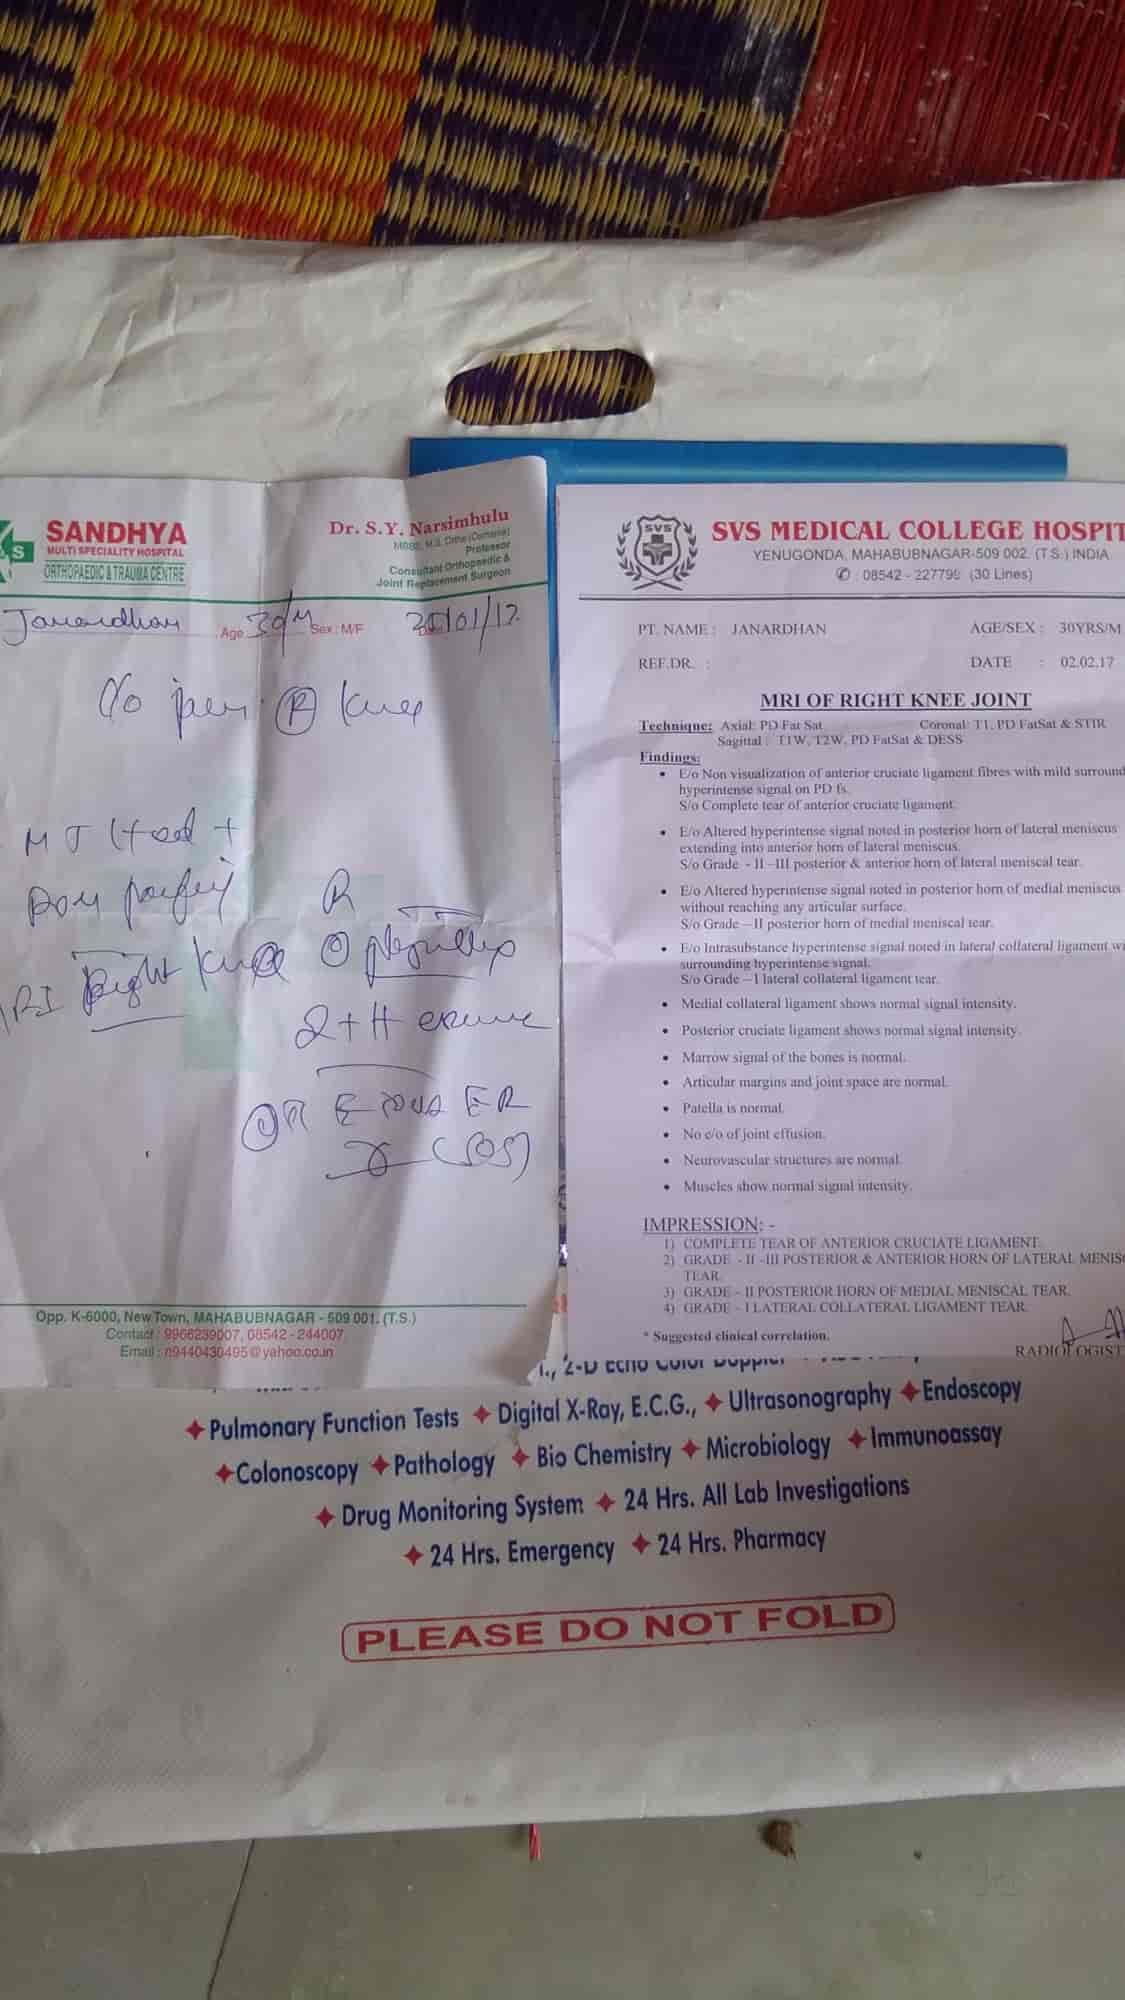 SANDHYA
MULTI SPECIALITY HOSPITAL
ORTHOPAEDIC & TRAUMA CENTRE
Dr. S.Y. Narsimhulu
MBBS, M.S. Ortho (Osmania)
Professor
Consultant Orthopaedic &
Joint Replacement Surgeon
Janardhan Age 30/M Sex : M/F /01/17
C/o pain (R) Knee
Right Knee
2 + H
ER
(SOS)
Opp. K-6000, New Town, MAHABUBNAGAR - 509 001. (T.S.)
Contact : 9966239007, 08542 - 244007
Email : n9440430495@yahoo.co.in
SVS
SVS MEDICAL COLLEGE HOSPIT
YENUGONDA, MAHABUBNAGAR-509 002. (T.S.) INDIA
✆ : 08542 - 227799 (30 Lines)
PT. NAME : JANARDHAN AGE/SEX : 30YRS/M
REF.DR. : DATE : 02.02.17
MRI OF RIGHT KNEE JOINT
Technique: Axial: PD Fat Sat Coronal: T1, PD FatSat & STIR
Sagittal : T1W, T2W, PD FatSat & DESS
Findings:
• E/o Non visualization of anterior cruciate ligament fibres with mild surround
hyperintense signal on PD fs.
S/o Complete tear of anterior cruciate ligament.
• E/o Altered hyperintense signal noted in posterior horn of lateral meniscus
extending into anterior horn of lateral meniscus.
S/o Grade - II –III posterior & anterior horn of lateral meniscal tear.
• E/o Altered hyperintense signal noted in posterior horn of medial meniscus
without reaching any articular surface.
S/o Grade –II posterior horn of medial meniscal tear.
• E/o Intrasubstance hyperintense signal noted in lateral collateral ligament wi
surrounding hyperintense signal.
S/o Grade – I lateral collateral ligament tear.
• Medial collateral ligament shows normal signal intensity.
• Posterior cruciate ligament shows normal signal intensity.
• Marrow signal of the bones is normal.
• Articular margins and joint space are normal.
• Patella is normal.
• No e/o of joint effusion.
• Neurovascular structures are normal.
• Muscles show normal signal intensity.
IMPRESSION: -
1) COMPLETE TEAR OF ANTERIOR CRUCIATE LIGAMENT.
2) GRADE - II -III POSTERIOR & ANTERIOR HORN OF LATERAL MENISC
TEAR.
3) GRADE - II POSTERIOR HORN OF MEDIAL MENISCAL TEAR.
4) GRADE – I LATERAL COLLATERAL LIGAMENT TEAR.
* Suggested clinical correlation.
RADIOLOGIST
2-D Echo Color Doppler
Pulmonary Function Tests ✦ Digital X-Ray, E.C.G., ✦ Ultrasonography ✦ Endoscopy
✦ Colonoscopy ✦ Pathology ✦ Bio Chemistry ✦ Microbiology ✦ Immunoassay
✦ Drug Monitoring System ✦ 24 Hrs. All Lab Investigations
✦ 24 Hrs. Emergency ✦ 24 Hrs. Pharmacy
PLEASE DO NOT FOLD